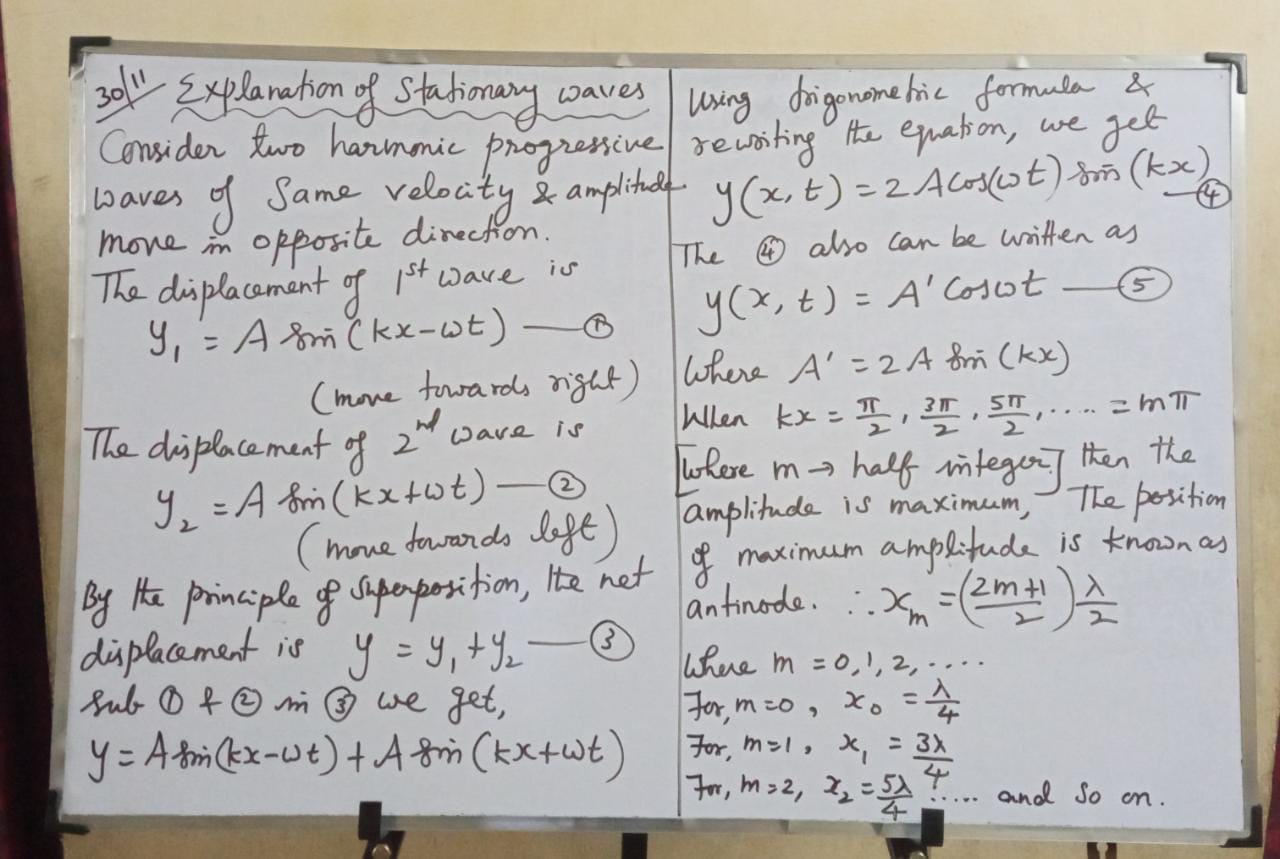 30/11 Explanation of Stationary waves
Consider two harmonic progressive
waves of Same velocity & amplitude
move in opposite direction.
The displacement of 1st wave is
y₁ = A sin (kx-ωt) —— ①
(move towards right)
The displacement of 2nd wave is
y₂ = A sin (kx+ωt) —— ②
(move towards left)
By the principle of superposition, the net
displacement is y = y₁ + y₂ —— ③
sub ① & ② in ③ we get,
y = A sin (kx-ωt) + A sin (kx+ωt)
Using trigonometric formula &
rewriting the equation, we get
y(x, t) = 2 A cos(ωt) sin (kx) —④
The ④ also can be written as
y(x, t) = A' Cosωt —— ⑤
Where A' = 2 A sin (kx)
When kx = π/2, 3π/2, 5π/2, ..... = mπ
[where m → half integer] then the
amplitude is maximum, The position
of maximum amplitude is known as
antinode. ∴ xₘ = (2m+1/2) λ/2
Where m = 0, 1, 2, ....
For, m=0, x₀ = λ/4
For, m=1, x₁ = 3λ/4
For, m=2, x₂ = 5λ/4 ..... and so on.